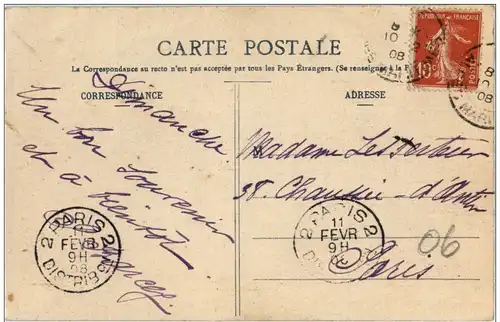 CARTE POSTALE
La Correspondance au recto n'est pas acceptée par tous les Pays Étrangers. (Se renseigner à la
CORRESPONDANCE
ADRESSE
Dimanche
Un bon souvenir
et à bientôt
M
Madame
38. Chaussée-d'Antin
Paris
PARIS
2 2
11
FEVR
9H
08
DISTRIB
PARIS
2 2
11
FEVR
9H
10
8
10
08
08
06